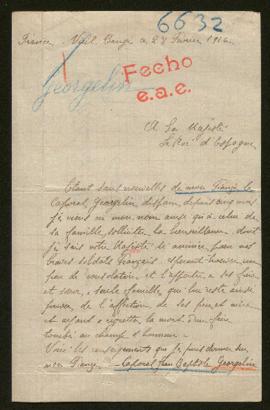 6632
France. Vieil Baugé le 27 Février 1916.
Georgelin
Fecho
e.a.e.
A Sa Majesté
Le Roi d'Espagne
Etant sans nouvelles de mon Fiancé le
Caporal, Georgelin, disparu, depuis
je viens en mon nom ainsi qu'à celui de
sa famille, solliciter la bienveillance dont
je sais votre Majesté si animée, pour nos
braves soldats Français, espérant trouver un
peu de consolation, et l'apporter à ses
et sœur, seule famille, qui lui reste ainsi
de l'affection de ses père et mère
et ayant à regretter la mort d'un frère
tombé au champ d'honneur.
Voici les renseignements que je puis donner sur
mon Fiancé, Caporal Jean Baptiste Georgelin